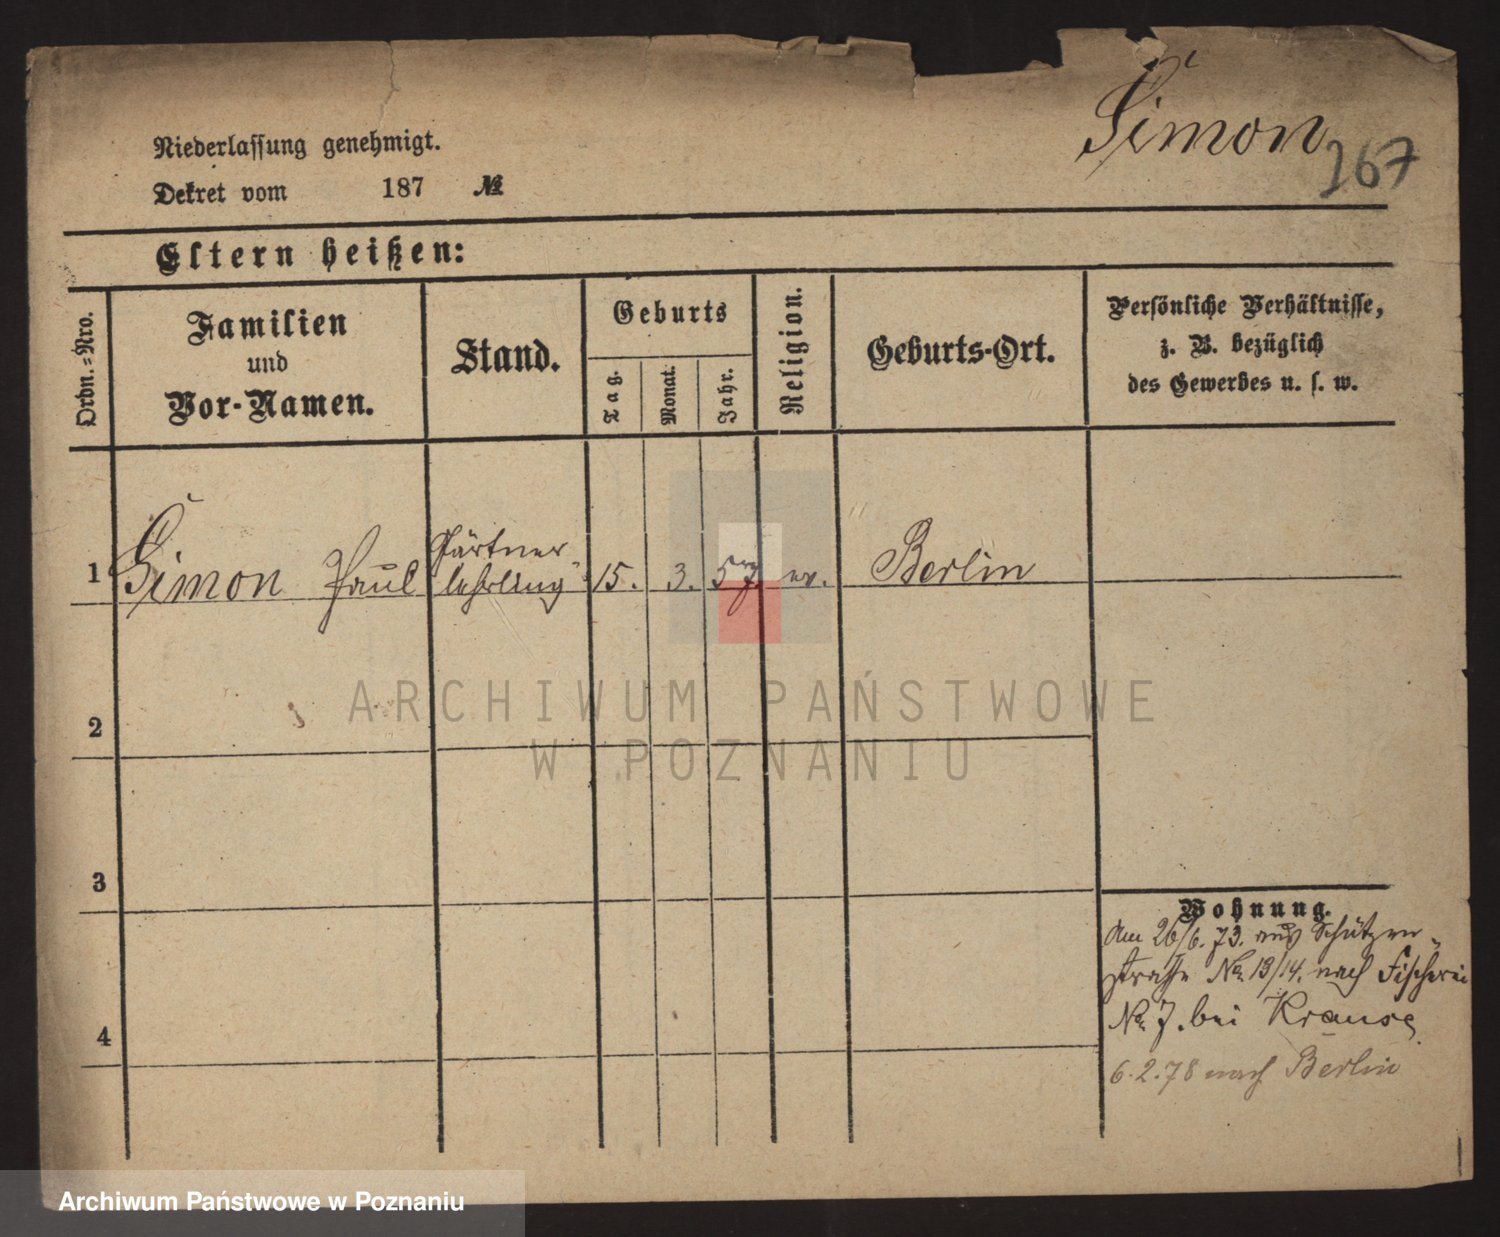 Simon
167
Niederlassung genehmigt.
Dekret vom 187 №
Eltern heißen:
Ordn.=Nro.
Familien
und
Vor-Namen.
Stand.
Geburts
Tag.
Monat.
Jahr.
Religion.
Geburts-Ort.
Persönliche Verhältnisse,
z. B. bezüglich
des Gewerbes u. s. w.
1 Simon Paul Gärtner
lehrling 15. 3. 57. ev. Berlin
2
3
4
Wohnung.
Am 26/6. 73. aus Schützen-
strasse No 13/14. nach Fischerei
No 7. bei Krause
6.2.78 nach Berlin
ARCHIWUM PAŃSTWOWE
W POZNANIU
Archiwum Państwowe w Poznaniu